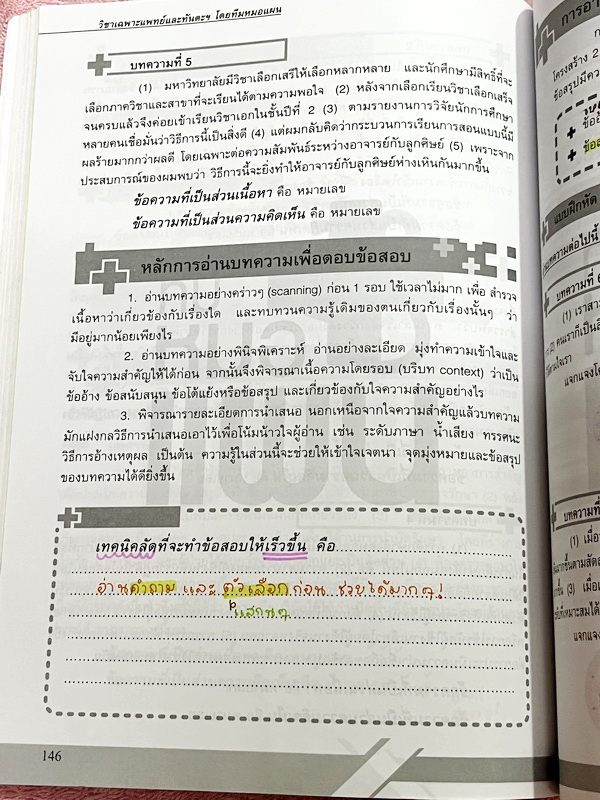 วิชาเฉพาะแพทย์และทันตะฯ โดยทีมหมอแผน
บทความที่ 5
(1) มหาวิทยาลัยมีวิชาเลือกเสรีให้เลือกหลากหลาย และนักศึกษามีสิทธิ์ที่จะ
เลือกภาควิชาและสาขาที่จะเรียนได้ตามความพอใจ (2) หลังจากเลือกเรียนวิชาเลือกเสร็จ
จนครบแล้วจึงค่อยเข้าเรียนวิชาเอกในชั้นปีที่ 2 (3) ตามรายงานการวิจัยนักการศึกษา
หลายคนเชื่อมั่นว่าวิธีการนี้เป็นสิ่งดี (4) แต่ผมกลับคิดว่ากระบวนการเรียนการสอนแบบนี้มี
ผลร้ายมากกว่าผลดี โดยเฉพาะต่อความสัมพันธ์ระหว่างอาจารย์กับลูกศิษย์ (5) เพราะจาก
ประสบการณ์ของผมพบว่า วิธีการนี้จะยิ่งทำให้อาจารย์กับลูกศิษย์ห่างเหินกันมากขึ้น
ข้อความที่เป็นส่วนเนื้อหา คือ หมายเลข
ข้อความที่เป็นส่วนความคิดเห็น คือ หมายเลข
หลักการอ่านบทความเพื่อตอบข้อสอบ
1. อ่านบทความอย่างคร่าวๆ (scanning) ก่อน 1 รอบ ใช้เวลาไม่มาก เพื่อ สำรวจ
เนื้อหาว่าเกี่ยวข้องกับเรื่องใด และทบทวนความรู้เดิมของตนเกี่ยวกับเรื่องนั้นๆ ว่า
มีอยู่มากน้อยเพียงไร
2. อ่านบทความอย่างพินิจพิเคราะห์ อ่านอย่างละเอียด มุ่งทำความเข้าใจและ
จับใจความสำคัญให้ได้ก่อน จากนั้นจึงพิจารณาเนื้อความโดยรอบ (บริบท context) ว่าเป็น
ข้ออ้าง ข้อสนับสนุน ข้อโต้แย้งหรือข้อสรุป และเกี่ยวข้องกับใจความสำคัญอย่างไร
3. พิจารณารายละเอียดการนำเสนอ นอกเหนือจากใจความสำคัญแล้วบทความ
มักแฝงกลวิธีการนำเสนอเอาไว้เพื่อโน้มน้าวใจผู้อ่าน เช่น ระดับภาษา น้ำเสียง ทรรศนะ
วิธีการอ้างเหตุผล เป็นต้น ความรู้ในส่วนนี้จะช่วยให้เข้าใจเจตนา จุดมุ่งหมายและข้อสรุป
ของบทความได้ดียิ่งขึ้น
เทคนิคลัดที่จะทำข้อสอบให้เร็วขึ้น คือ
อ่านคำถาม และ ตัวเลือก ก่อน ช่วยได้มาก ๆ!
แสกนๆ
146